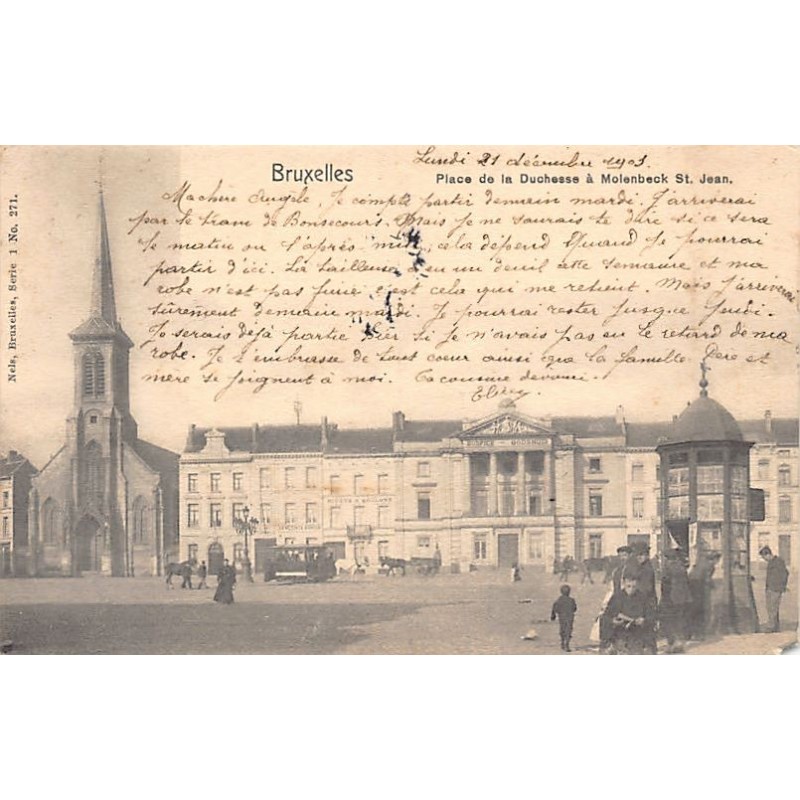 Lundi 21 décembre 1903.
Bruxelles
Place de la Duchesse à Molenbeck St. Jean.
Ma chère Angèle, Je compte partir demain mardi. J'arriverai
par le tram de Bonsecours. Mais je ne saurais te dire si ce sera
le matin ou l'après-midi, cela dépend quand je pourrai
partir d'ici. La tailleuse a eu un deuil cette semaine et ma
robe n'est pas finie c'est cela qui me retient. Mais j'arriverai
sûrement demain mardi. Je pourrai rester jusque jeudi.
Je serais déjà partie hier si je n'avais pas eu le retard de ma
robe. Je t'embrasse de tout coeur ainsi que la famille. Père et
mère se joignent à moi. Ta cousine dévouée.
Nels, Bruxelles, Serie 1 No. 271.